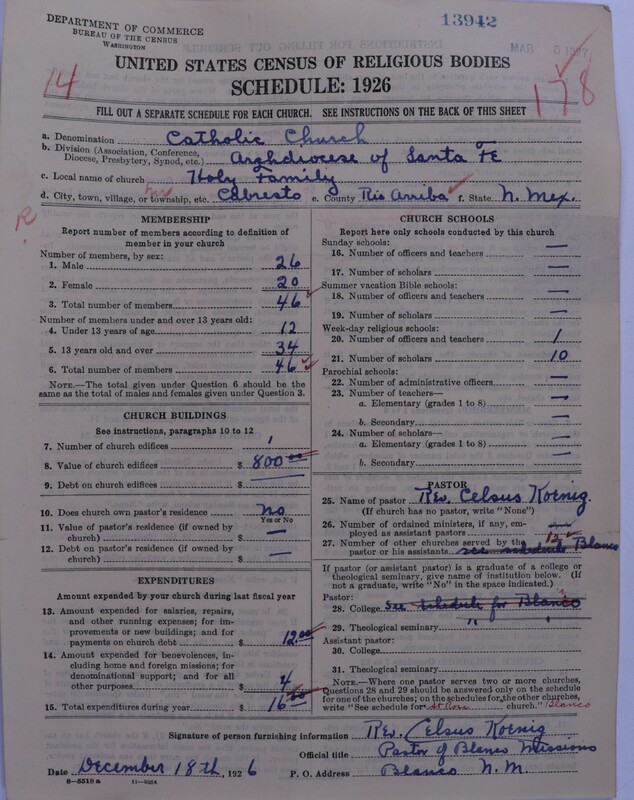 DEPARTMENT OF COMMERCE
BUREAU OF THE CENSUS
WASHINGTON
13942
MAR 5 1927
UNITED STATES CENSUS OF RELIGIOUS BODIES
SCHEDULE: 1926
14
178
FILL OUT A SEPARATE SCHEDULE FOR EACH CHURCH. SEE INSTRUCTIONS ON THE BACK OF THIS SHEET
a. Denomination Catholic Church
b. Division (Association, Conference, Diocese, Presbytery, Synod, etc.) Arghdiocese of Santa Fe
c. Local name of church Holy Family
d. City, town, village, or township, etc. Cabresto e. County Rio Arriba f. State N. Mex.
R
MEMBERSHIP
Report number of members according to definition of
member in your church
Number of members, by sex:
1. Male 26
2. Female 20
3. Total number of members 46
Number of members under and over 13 years old:
4. Under 13 years of age 12
5. 13 years old and over 34
6. Total number of members 46
NOTE.—The total given under Question 6 should be the
same as the total of males and females given under Question 3.
CHURCH BUILDINGS
See instructions, paragraphs 10 to 12
7. Number of church edifices 1
8. Value of church edifices $ 800 00
9. Debt on church edifices $ —
10. Does church own pastor's residence No
Yes or No
11. Value of pastor's residence (if owned by
church) $ —
12. Debt on pastor's residence (if owned by
church) $ —
EXPENDITURES
Amount expended by your church during last fiscal year
13. Amount expended for salaries, repairs,
and other running expenses; for im-
provements or new buildings; and for
payments on church debt $ 12.00
14. Amount expended for benevolences, in-
cluding home and foreign missions; for
denominational support; and for all
other purposes $ 4
15. Total expenditures during year $ 16 00
CHURCH SCHOOLS
Report here only schools conducted by this church
Sunday schools:
16. Number of officers and teachers —
17. Number of scholars —
Summer vacation Bible schools:
18. Number of officers and teachers —
19. Number of scholars —
Week-day religious schools:
20. Number of officers and teachers 1
21. Number of scholars 10
Parochial schools:
22. Number of administrative officers —
23. Number of teachers—
a. Elementary (grades 1 to 8) —
b. Secondary —
24. Number of scholars—
a. Elementary (grades 1 to 8) —
b. Secondary —
PASTOR
25. Name of pastor Rev. Celsus Koenig.
(If church has no pastor, write "None")
26. Number of ordained ministers, if any, em-
ployed as assistant pastors —
27. Number of other churches served by the 12
pastor or his assistants see schedule Blanco
If pastor (or assistant pastor) is a graduate of a college or
theological seminary, give name of institution below. (If
not a graduate, write "No" in the space indicated.)
Pastor:
28. College See schedule for Blanco
29. Theological seminary " "
Assistant pastor:
30. College
31. Theological seminary
NOTE.—Where one pastor serves two or more churches,
Questions 28 and 29 should be answered only on the schedule
for one of the churches; on the schedules for the other churches,
write "See schedule for St Rose church." Blanco
Signature of person furnishing information Rev. Celsus Koenig
Official title Pastor of Blanco Missions
Date December 18th, 1926 P. O. Address Blanco N. M.
8—5518 a